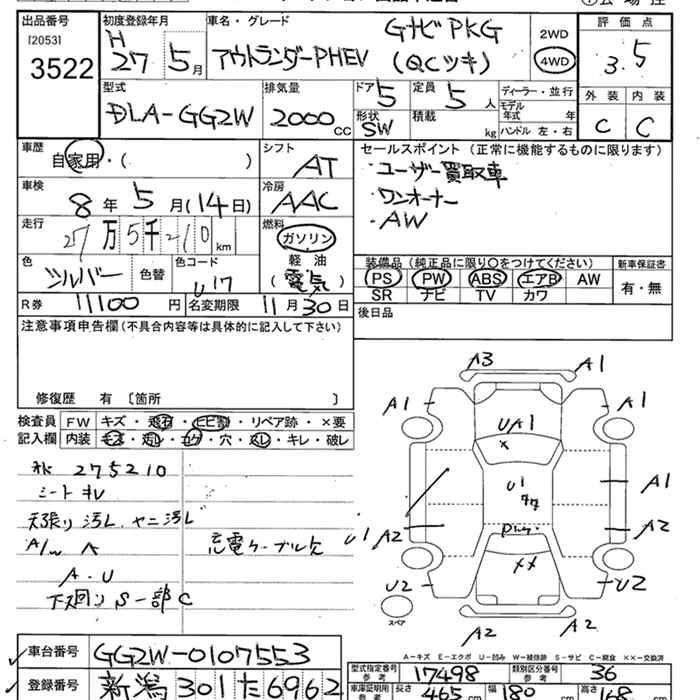 出品番号 初度登録年月 車名・グレード 評価点
[2053] H GナビPKG 2WD
3522 27 5月 アウトランダーPHEV (QCツキ) 4WD 3.5
型式 排気量 ドア 5 定員 5人 ディーラー・並行 外装 内装
DLA-GG2W 2000CC 形状 SW 積載 kg モデル年式 年 C C
ハンドル 左・右
車歴 自家用・( ) シフト AT セールスポイント (正常に機能するものに限ります)
車検 8年 5月(14日) 冷房 AAC ・ユーザー買取車
走行 27万5千210km 燃料 ・ワンオーナー
ガソリン ・AW
色 シルバー 色替 色コード U17 軽油 (電気) 装備品(純正品に限り○をつけてください) 新車保証書
PS PW ABS エアB AW 有・無
R券 11100円 名変期限 11月30日 SR ナビ TV カワ
注意事項申告欄(不具合内容等は具体的に記入して下さい) 後日品
修復歴 有 〔箇所 〕
検査員 FW キズ・飛石・ヒビ割・リペア跡・×要
記入欄 内装 キズ・汚レ・コゲ・穴・スレ・キレ・破レ
275210
シートキレ
天張り汚レ、ヤニ汚レ
A/W A 充電ケーブル欠
A・U
下廻りS 一部C
A3 A1
A1 UA1 A1
×
U1 A1
U1 A2 A2
U2 ×× U2
スペア
A2 A2
A-キズ E-エクボ U-凹み W-補修跡 S-サビ C-腐食 ××-交換済
車台番号 GG2W-0107553
型式指定番号 参考 17498 類別区分番号 参考 36
登録番号 新潟 301 た 6962
車庫証明用 参考 長さ 465cm 幅 180cm 高さ 168cm